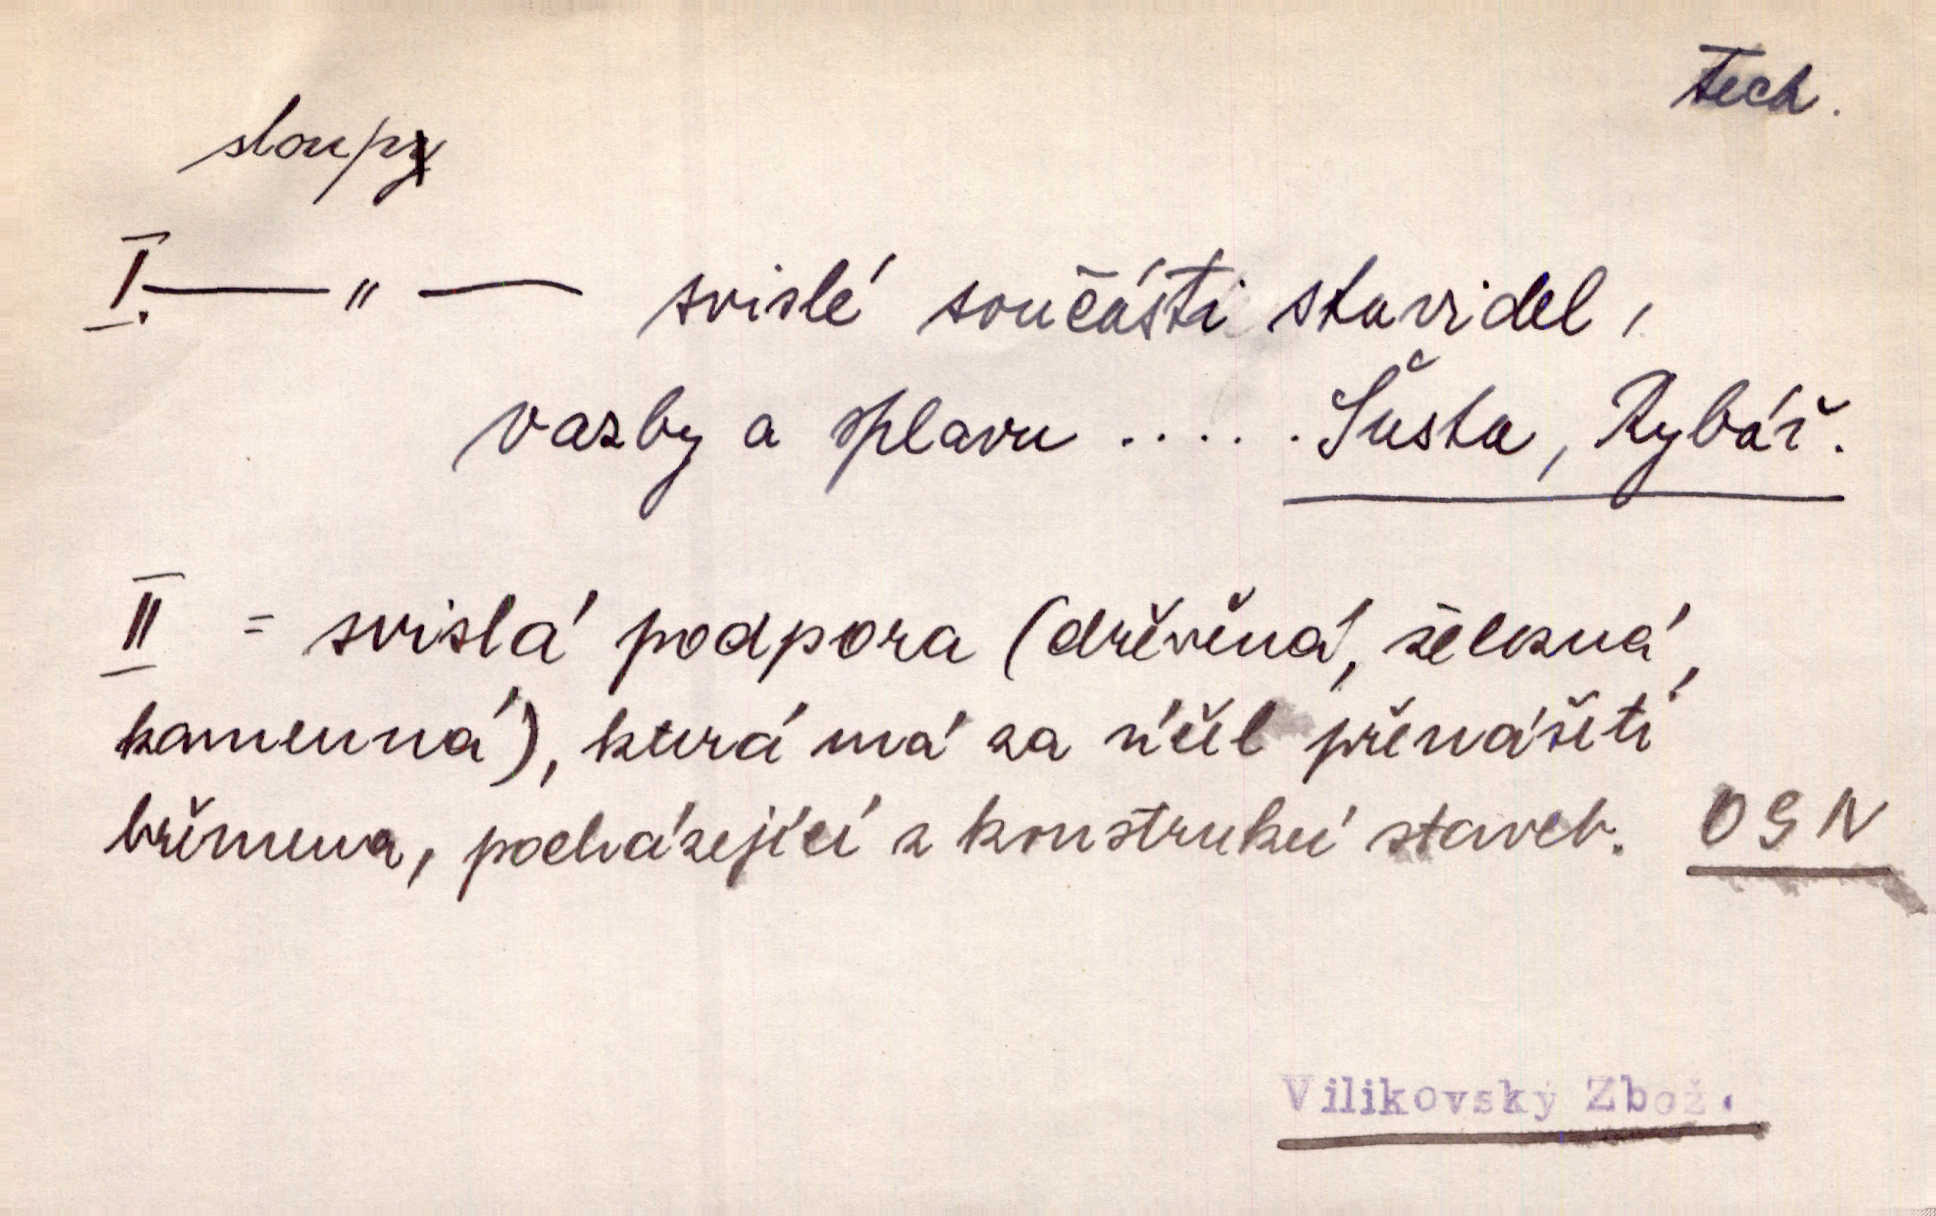 tech.
sloup
I. — " — svislé součásti stavidel,
vazby a splavu ..... Šusta, Rybář.
II = svislá podpora (dřěvěná, želesná,
kamenná), která má za účel přenášeti
břímena, pocházející z konstrukcí staveb. OSN
Vilikovský Zbož.